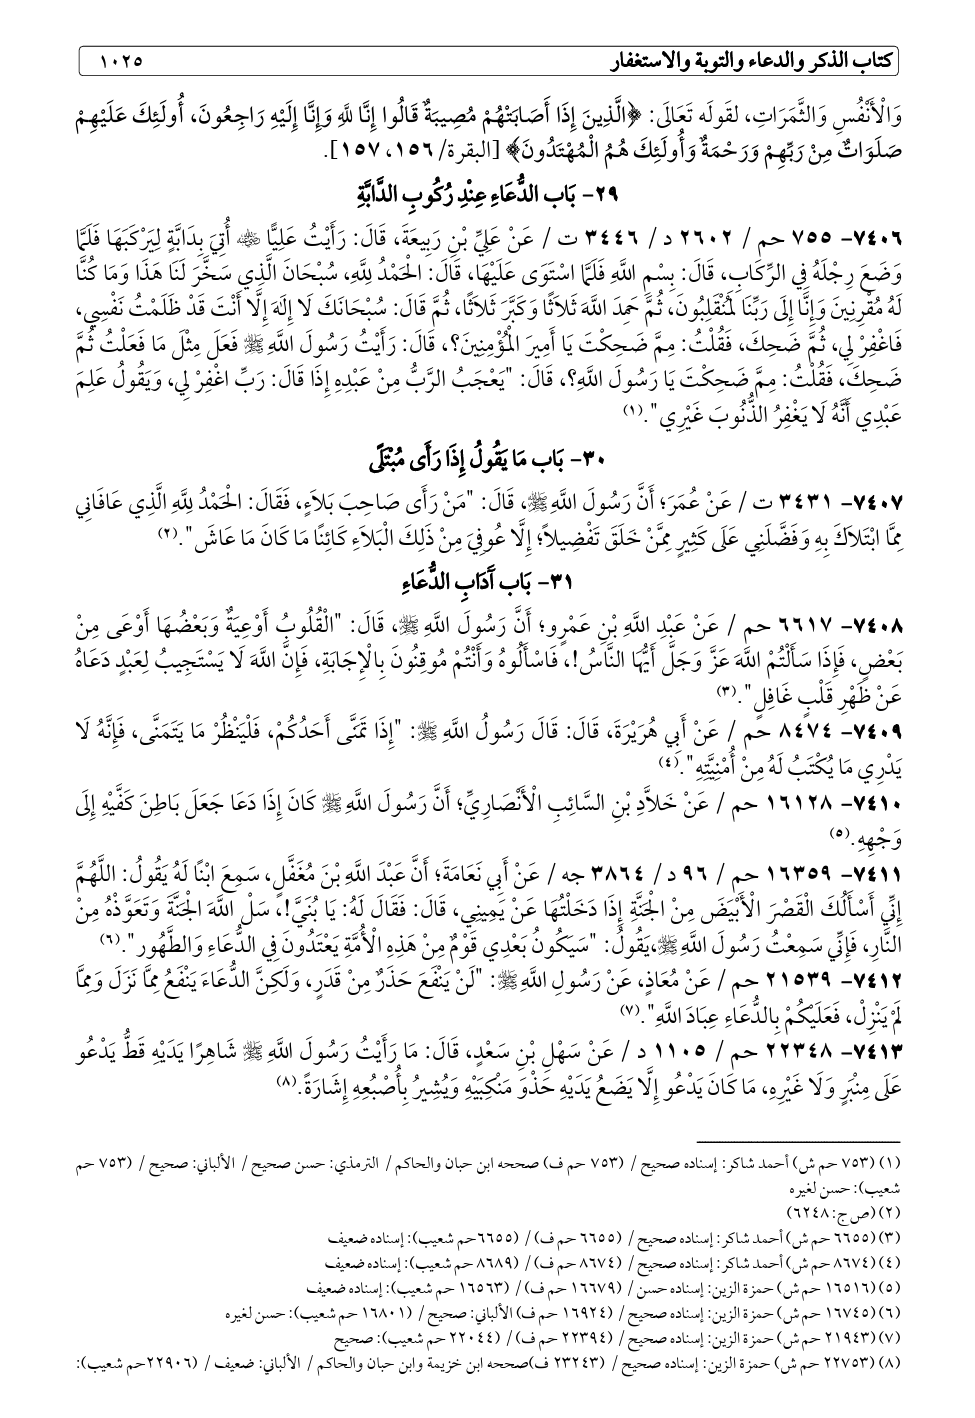 كتاب الذكر والدعاء والتوبة والاستغفار ١٠٢٥
وَالْأَنْفُسِ وَالثَّمَرَاتِ، لقوله تَعَالَى: ﴿الَّذِينَ إِذَا أَصَابَتْهُمْ مُصِيبَةٌ قَالُوا إِنَّا لِلَّهِ وَإِنَّا إِلَيْهِ رَاجِعُونَ، أُولَئِكَ عَلَيْهِمْ
صَلَوَاتٌ مِنْ رَبِّهِمْ وَرَحْمَةٌ وَأُولَئِكَ هُمُ الْمُهْتَدُونَ﴾ [البقرة/ ١٥٦، ١٥٧].
٢٩- بَاب الدُّعَاءِ عِنْدِ رُكُوبِ الدَّابَّةِ
٧٤٠٦- ٧٥٥ حم / ٢٦٠٢ د / ٣٤٤٦ ت / عَنْ عَلِيِّ بْنِ رَبِيعَةَ، قَالَ: رَأَيْتُ عَلِيًّا ﵁ أُتِيَ بِدَابَّةٍ لِيَرْكَبَهَا فَلَمَّا
وَضَعَ رِجْلَهُ فِي الرِّكَابِ، قَالَ: بِسْمِ اللَّهِ فَلَمَّا اسْتَوَى عَلَيْهَا، قَالَ: الْحَمْدُ لِلَّهِ، سُبْحَانَ الَّذِي سَخَّرَ لَنَا هَذَا وَمَا كُنَّا
لَهُ مُقْرِنِينَ وَإِنَّا إِلَى رَبِّنَا لَمُنْقَلِبُونَ، ثُمَّ حَمِدَ اللَّهَ ثَلَاثًا وَكَبَّرَ ثَلَاثًا، ثُمَّ قَالَ: سُبْحَانَكَ لَا إِلَهَ إِلَّا أَنْتَ قَدْ ظَلَمْتُ نَفْسِي،
فَاغْفِرْ لِي، ثُمَّ ضَحِكَ، فَقُلْتُ: مِمَّ ضَحِكْتَ يَا أَمِيرَ الْمُؤْمِنِينَ؟، قَالَ: رَأَيْتُ رَسُولَ اللَّهِ ﷺ فَعَلَ مِثْلَ مَا فَعَلْتُ ثُمَّ
ضَحِكَ، فَقُلْتُ: مِمَّ ضَحِكْتَ يَا رَسُولَ اللَّهِ؟، قَالَ: "يَعْجَبُ الرَّبُّ مِنْ عَبْدِهِ إِذَا قَالَ: رَبِّ اغْفِرْ لِي، وَيَقُولُ عَلِمَ
عَبْدِي أَنَّهُ لَا يَغْفِرُ الذُّنُوبَ غَيْرِي".(١)
٣٠- بَاب مَا يَقُولُ إِذَا رَأَى مُبْتَلًى
٧٤٠٧- ٣٤٣١ ت / عَنْ عُمَرَ؛ أَنَّ رَسُولَ اللَّهِ ﷺ، قَالَ: "مَنْ رَأَى صَاحِبَ بَلَاءٍ، فَقَالَ: الْحَمْدُ لِلَّهِ الَّذِي عَافَانِي
مِمَّا ابْتَلَاكَ بِهِ وَفَضَّلَنِي عَلَى كَثِيرٍ مِمَّنْ خَلَقَ تَفْضِيلاً؛ إِلَّا عُوفِيَ مِنْ ذَلِكَ الْبَلَاءِ كَائِنًا مَا كَانَ مَا عَاشَ".(٢)
٣١- بَاب آدَابِ الدُّعَاءِ
٧٤٠٨- ٦٦١٧ حم / عَنْ عَبْدِ اللَّهِ بْنِ عَمْرٍو؛ أَنَّ رَسُولَ اللَّهِ ﷺ، قَالَ: "الْقُلُوبُ أَوْعِيَةٌ وَبَعْضُهَا أَوْعَى مِنْ
بَعْضٍ، فَإِذَا سَأَلْتُمْ اللَّهَ عَزَّ وَجَلَّ أَيُّهَا النَّاسُ!، فَاسْأَلُوهُ وَأَنْتُمْ مُوقِنُونَ بِالْإِجَابَةِ، فَإِنَّ اللَّهَ لَا يَسْتَجِيبُ لِعَبْدٍ دَعَاهُ
عَنْ ظَهْرِ قَلْبٍ غَافِلٍ".(٣)
٧٤٠٩- ٨٤٧٤ حم / عَنْ أَبِي هُرَيْرَةَ، قَالَ: قَالَ رَسُولُ اللَّهِ ﷺ: "إِذَا تَمَنَّى أَحَدُكُمْ، فَلْيَنْظُرْ مَا يَتَمَنَّى، فَإِنَّهُ لَا
يَدْرِي مَا يُكْتَبُ لَهُ مِنْ أُمْنِيَّتِهِ".(٤)
٧٤١٠- ١٦١٢٨ حم / عَنْ خَلَّادِ بْنِ السَّائِبِ الْأَنْصَارِيِّ؛ أَنَّ رَسُولَ اللَّهِ ﷺ كَانَ إِذَا دَعَا جَعَلَ بَاطِنَ كَفَّيْهِ إِلَى
وَجْهِهِ.(٥)
٧٤١١- ١٦٣٥٩ حم / ٩٦ د / ٣٨٦٤ جه / عَنْ أَبِي نَعَامَةَ؛ أَنَّ عَبْدَ اللَّهِ بْنَ مُغَفَّلٍ، سَمِعَ ابْنًا لَهُ يَقُولُ: اللَّهُمَّ
إِنِّي أَسْأَلُكَ الْقَصْرَ الْأَبْيَضَ مِنْ الْجَنَّةِ إِذَا دَخَلْتُهَا عَنْ يَمِينِي، قَالَ: فَقَالَ لَهُ: يَا بُنَيَّ!، سَلْ اللَّهَ الْجَنَّةَ وَتَعَوَّذْهُ مِنْ
النَّارِ، فَإِنِّي سَمِعْتُ رَسُولَ اللَّهِ ﷺ،يَقُولُ: "سَيَكُونُ بَعْدِي قَوْمٌ مِنْ هَذِهِ الْأُمَّةِ يَعْتَدُونَ فِي الدُّعَاءِ وَالطَّهُورِ".(٦)
٧٤١٢- ٢١٥٣٩ حم / عَنْ مُعَاذٍ، عَنْ رَسُولِ اللَّهِ ﷺ: "لَنْ يَنْفَعَ حَذَرٌ مِنْ قَدَرٍ، وَلَكِنَّ الدُّعَاءَ يَنْفَعُ مِمَّا نَزَلَ وَمِمَّا
لَمْ يَنْزِلْ، فَعَلَيْكُمْ بِالدُّعَاءِ عِبَادَ اللَّهِ".(٧)
٧٤١٣- ٢٢٣٤٨ حم / ١١٠٥ د / عَنْ سَهْلِ بْنِ سَعْدٍ، قَالَ: مَا رَأَيْتُ رَسُولَ اللَّهِ ﷺ شَاهِرًا يَدَيْهِ قَطُّ يَدْعُو
عَلَى مِنْبَرٍ وَلَا غَيْرِهِ، مَا كَانَ يَدْعُو إِلَّا يَضَعُ يَدَيْهِ حَذْوَ مَنْكِبَيْهِ وَيُشِيرُ بِأُصْبُعِهِ إِشَارَةً.(٨)
(١) (٧٥٣ حم ش) أحمد شاكر: إسناده صحيح / (٧٥٣ حم ف) صححه ابن حبان والحاكم / الترمذي: حسن صحيح / الألباني: صحيح / (٧٥٣ حم
شعيب): حسن لغيره
(٢) (ص ج: ٦٢٤٨)
(٣) (٦٦٥٥ حم ش) أحمد شاكر: إسناده صحيح / (٦٦٥٥ حم ف) / (٦٦٥٥حم شعيب): إسناده ضعيف
(٤) (٨٦٧٤ حم ش) أحمد شاكر: إسناده صحيح / (٨٦٧٤ حم ف) / (٨٦٨٩ حم شعيب): إسناده ضعيف
(٥) (١٦٥١٦ حم ش) حمزة الزين: إسناده حسن / (١٦٦٧٩ حم ف) / (١٦٥٦٣ حم شعيب): إسناده ضعيف
(٦) (١٦٧٤٥ حم ش) حمزة الزين: إسناده صحيح / (١٦٩٢٤ حم ف) الألباني: صحيح / (١٦٨٠١ حم شعيب): حسن لغيره
(٧) (٢١٩٤٣ حم ش) حمزة الزين: إسناده صحيح / (٢٢٣٩٤ حم ف) / (٢٢٠٤٤ حم شعيب): صحيح
(٨) (٢٢٧٥٣ حم ش) حمزة الزين: إسناده صحيح / (٢٣٢٤٣ ف)صححه ابن خزيمة وابن حبان والحاكم / الألباني: ضعيف / (٢٢٩٠٦حم شعيب):